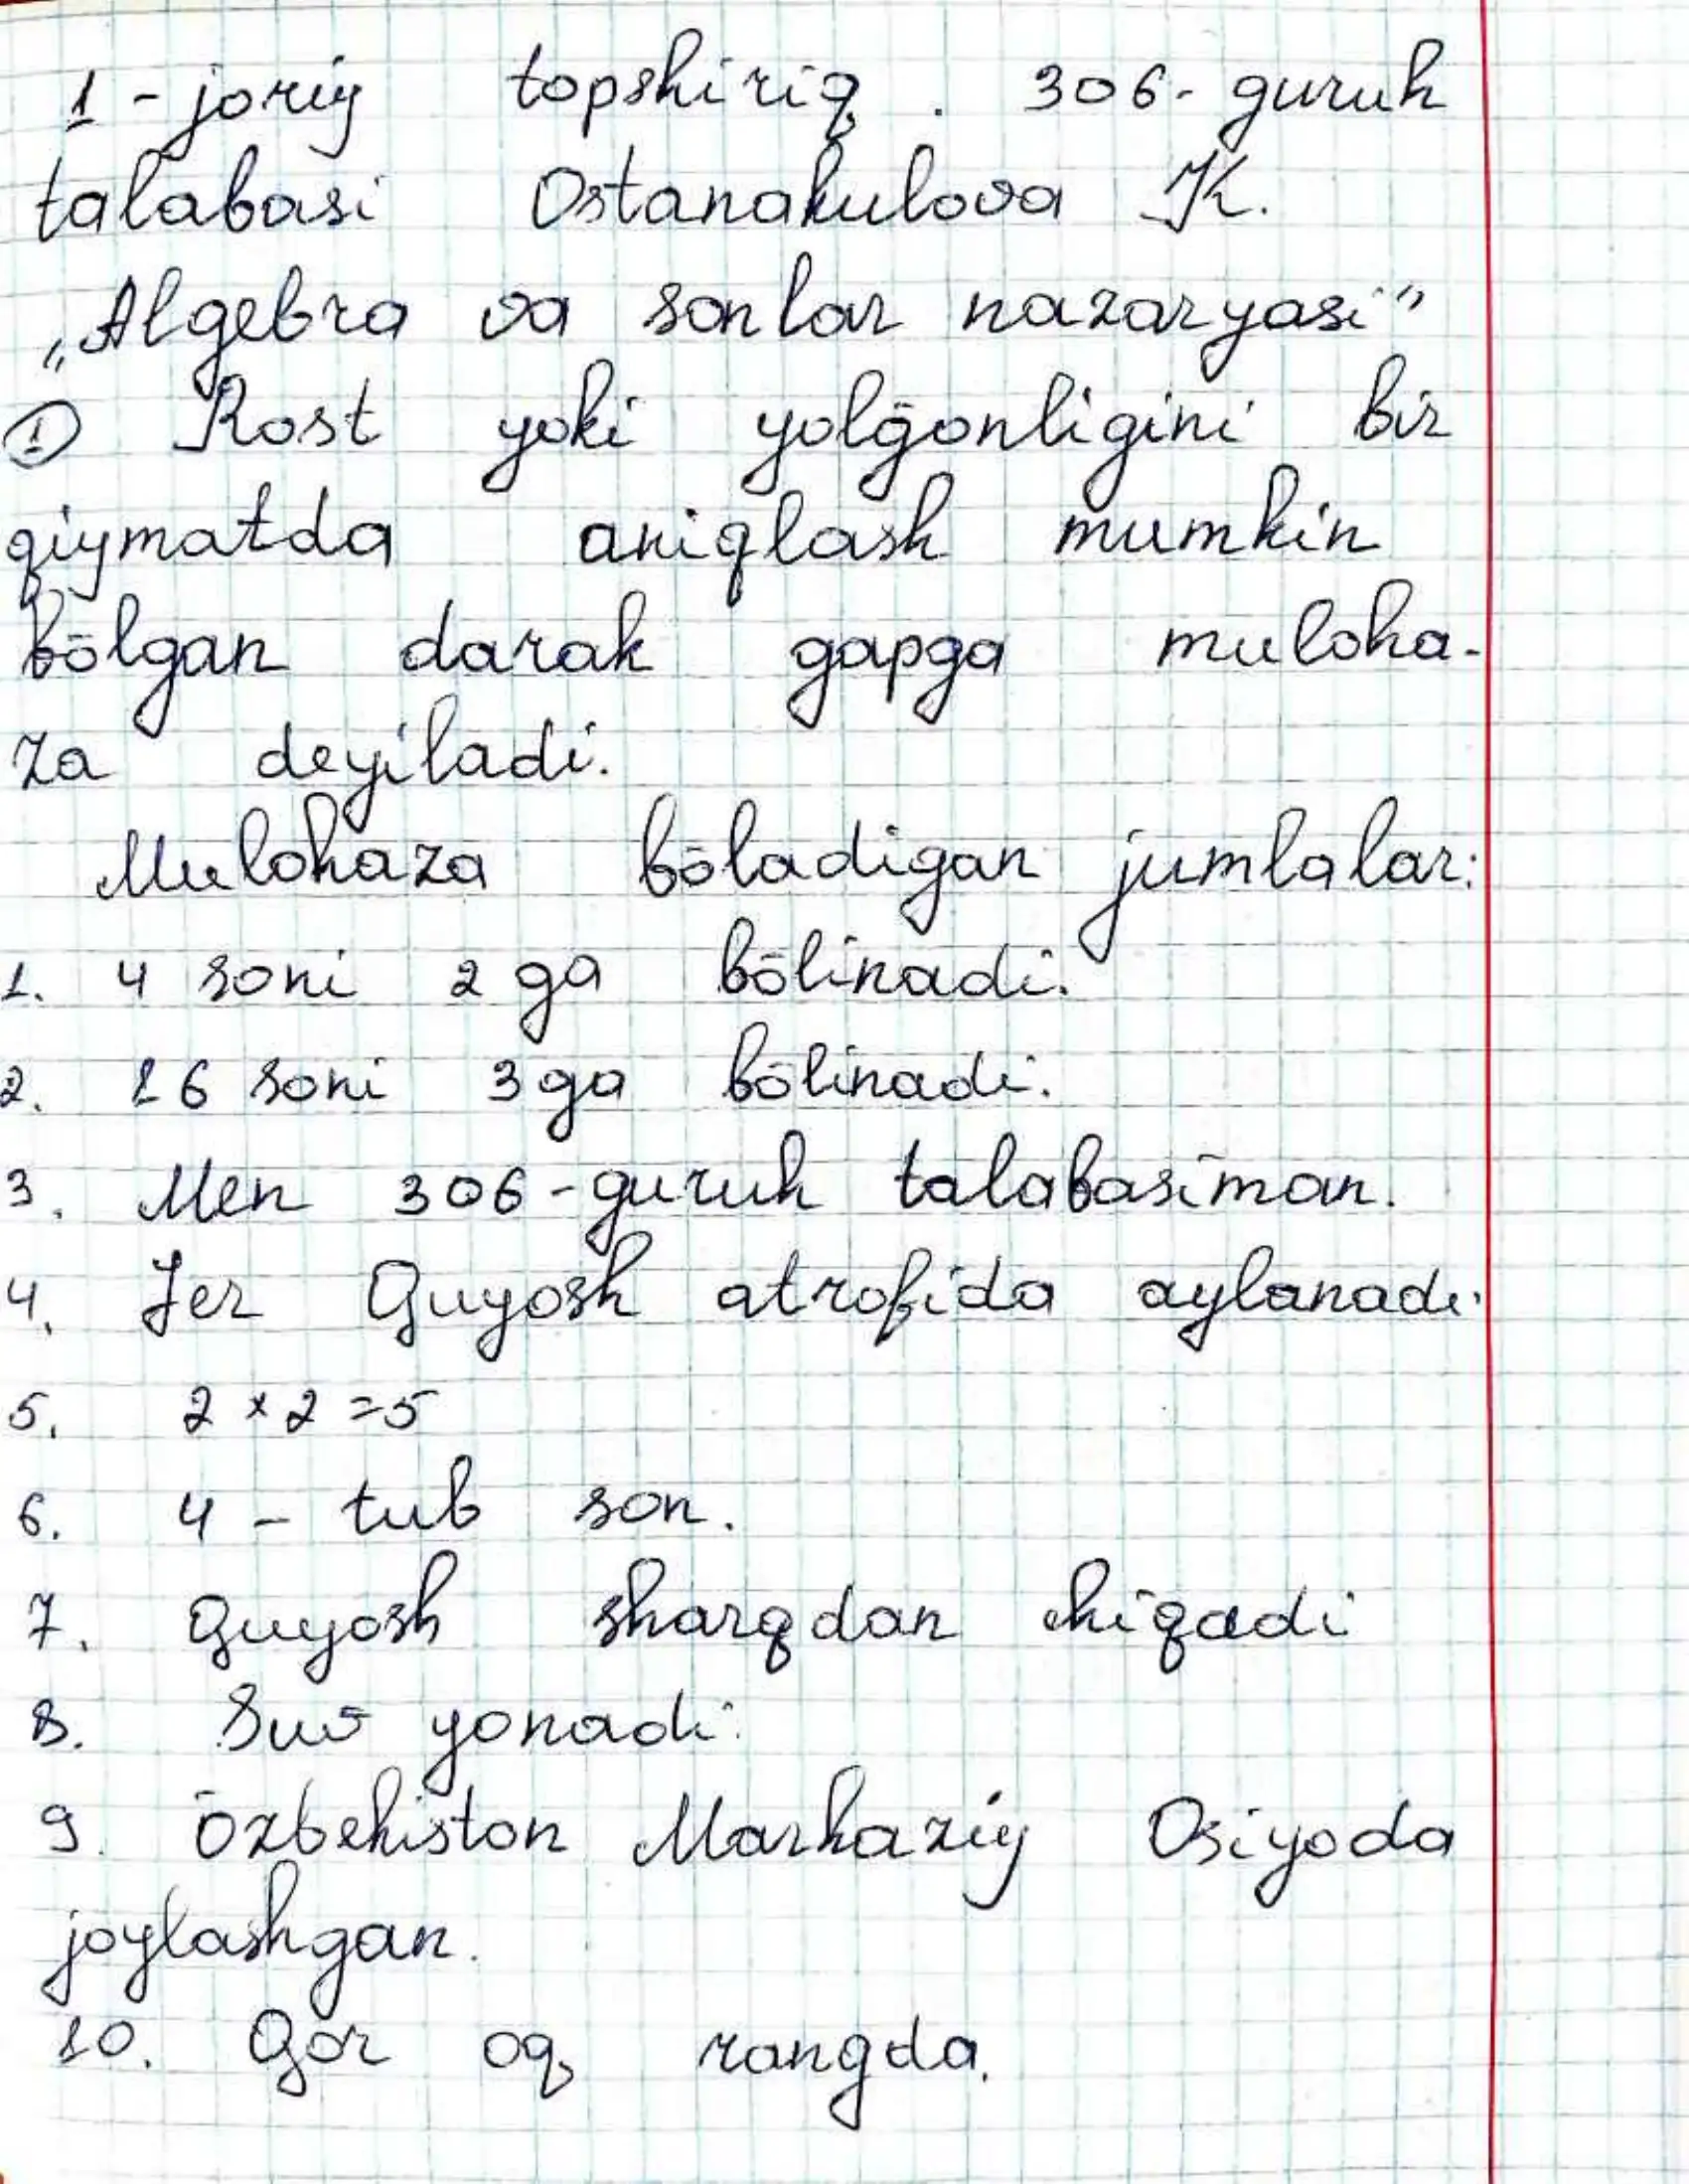 1 - joriy topshiriq . 306 - guruh
talabasi Ostanakulova K.
„Algebra va sonlar nazaryasi”
① Rost yoki yolḡonligini bir
qiymatda aniqlash mumkin
bōlgan darak gapga muloha-
za deyiladi.
Mulohaza bōladigan jumlalar:
1. 4 soni 2 ga bōlinadi.
2. 16 soni 3 ga bōlinadi.
3. Men 306 - guruh talabasiman.
4. Yer Quyosh atrofida aylanadi.
5. 2 × 2 = 5
6. 4 - tub son.
7. Quyosh sharqdan chiqadi
8. Suv yonadi.
9. Ōzbekiston Markaziy Osiyoda
joylashgan.
10. Qor oq rangda.